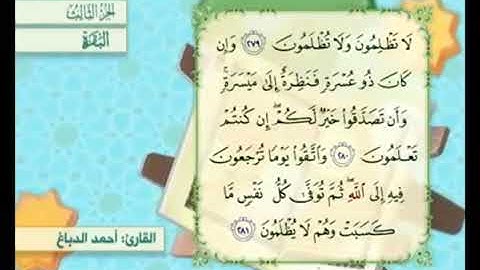 الجزء الثالث
البقرة
لَا تَظْلِمُونَ وَلَا تُظْلَمُونَ ٢٧٩ وَإِن
كَانَ ذُو عُسْرَةٍ فَنَظِرَةٌ إِلَىٰ مَيْسَرَةٍ ۚ
وَأَن تَصَدَّقُوا۟ خَيْرٌ لَّكُمْ ۖ إِن كُنتُمْ
تَعْلَمُونَ ٢٨٠ وَٱتَّقُوا۟ يَوْمًا تُرْجَعُونَ
فِيهِ إِلَى ٱللَّهِ ۖ ثُمَّ تُوَفَّىٰ كُلُّ نَفْسٍ مَّا
كَسَبَتْ وَهُمْ لَا يُظْلَمُونَ ٢٨١
القارئ: أحمد الدباغ